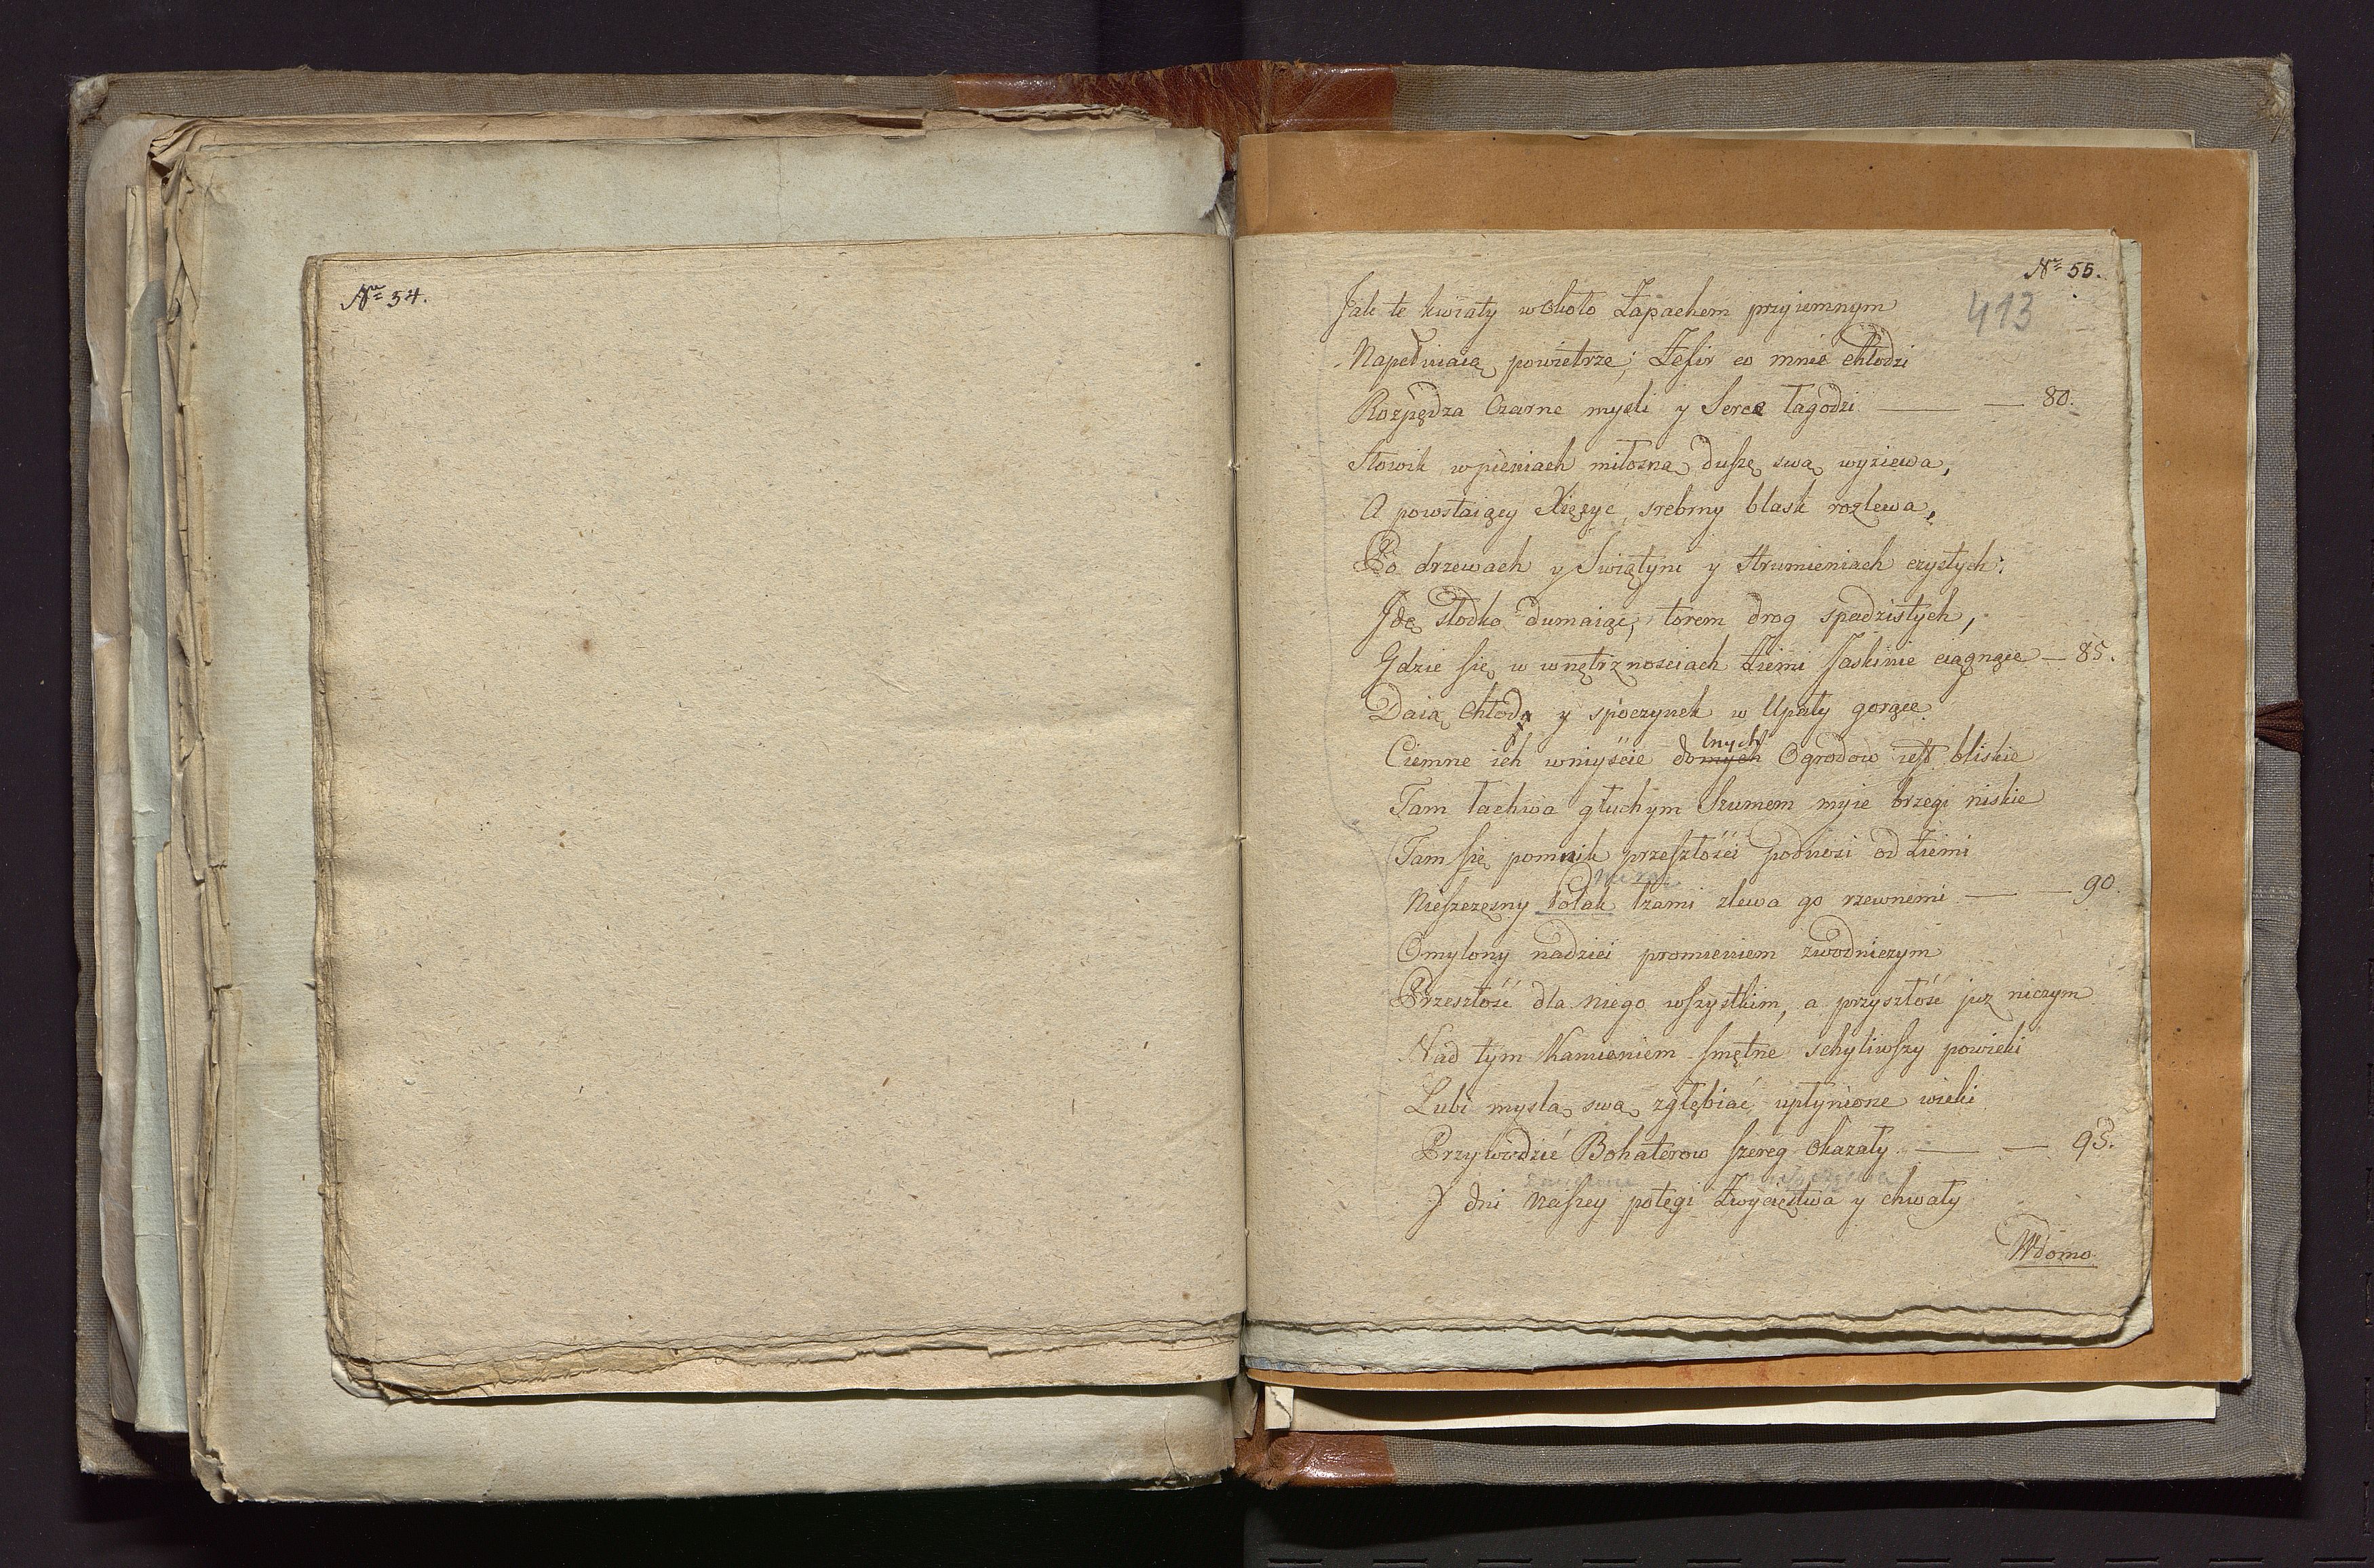 Nro 54.
Nro 55.
413
Jak te kwiaty wokoło Zapachem przyiemnym
Napełniaią powietrze; Zefir co mnie chłodzi
Rozpędza Czarne mysli y Serce łagodzi — — 80.
Słowik w pieniach miłosną duszę swą wyziewa,
A powstaiący Xiężyc, srebrny blask rozlewa,
Po drzewach y Swiątyni y strumieniach czystych:
Idę słodko dumaiąc, torem drog spadzistych,
Gdzie się w wnętrznościach Ziemi Jaskinie ciągnące — 85.
Daią chłody y spoczynek w Upały gorące
lnych
Ciemne ich wniyście domych Ogrodow iest bliskie
Tam Łachwa głuchym Szumem myie brzegi niskie
Tam się pomnik przeszłości podnosi od Ziemi
Nieszczęsny Polak łzami zlewa go rzewnemi — — 90.
Omylony nadziei promieniem zwodniczym
Przeszłość dla niego wszystkim, a przyszłość juz niczym
Nad tym Kamieniem smętne schyliwszy powieki
Lubi myslą swą zgłębiać upłynione wieki
Przywodzić Bohaterow szereg okazały — — 95.
Y dni naszey potęgi Zwycięstwa y chwały
Wdomo